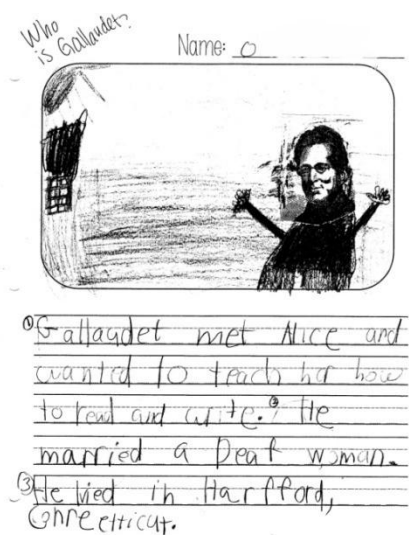 Who
is Gallaudet?
Name: O
① Gallaudet met Alice and
wanted to teach her how
to read and write. ② He
married a Deaf woman.
③ He lived in Harfford,
Conneetticut.